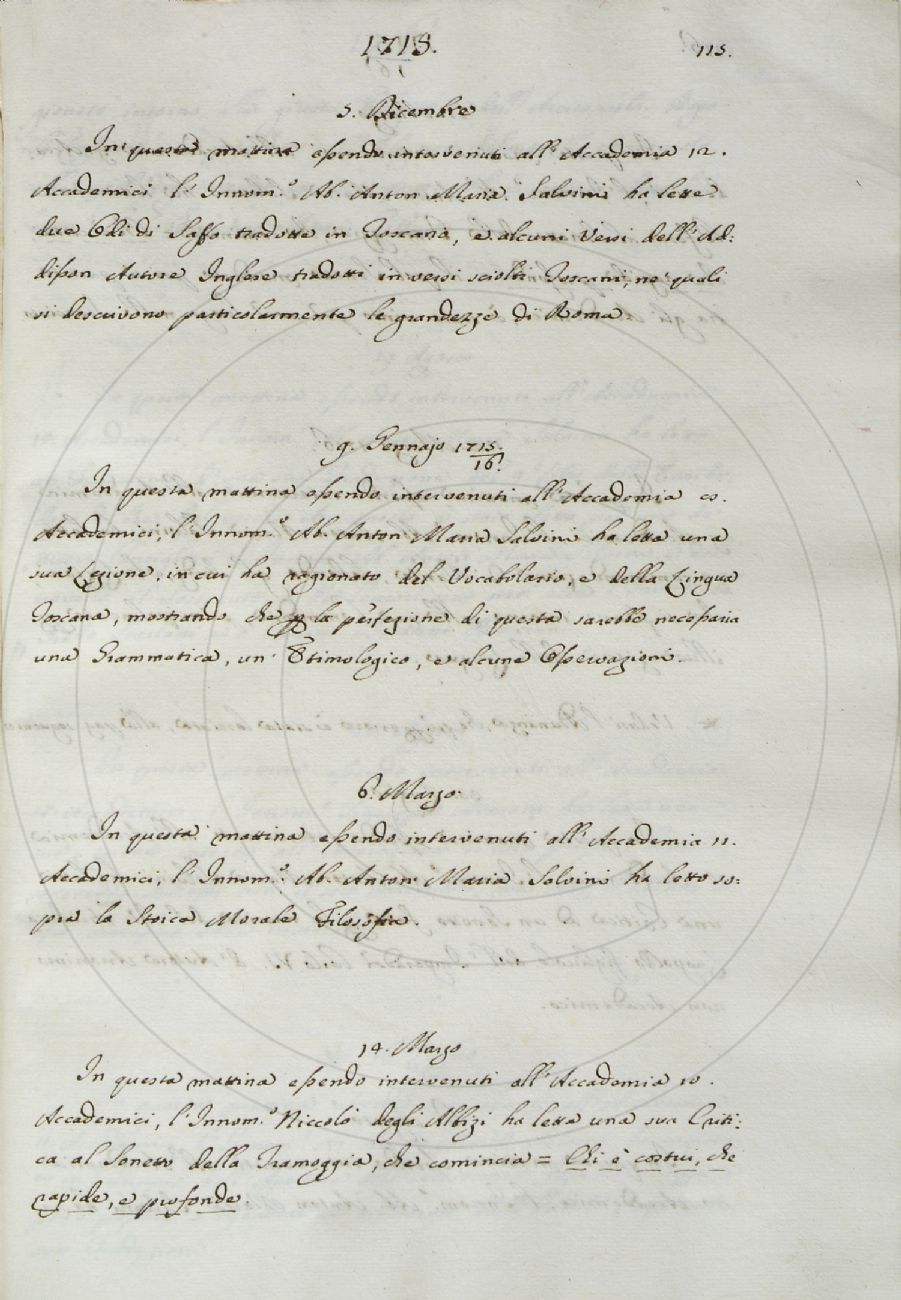 1715. 115.
5. Dicembre
In questa mattina essendo intervenuti all'Accademia 12.
Accademici l'Innom.º Ab. Anton Maria Salvini ha lette
due Odi di Saffo tradotte in Toscano, e alcuni Versi dell'Ad:
disson Autore Inglese tradotti in versi sciolti Toscani, ne' quali
si descrivono particolarmente le grandezze di Roma
9. Gennajo 1715/16.
In questa mattina essendo intervenuti all'Accademia 10.
Accademici, l'Innom.º Ab. Anton Maria Salvini ha letta una
sua Lezione, in cui ha ragionato del Vocabolario, e della Lingua
Toscana, mostrando che la perfezione di questa sarebbe necessaria
una Grammatica, un' Etimologico, e alcune Osservazioni.
6. Marzo.
In questa mattina essendo intervenuti all'Accademia 11.
Accademici, l'Innom.º Ab. Anton Maria Salvini ha letto so:
pra la Stoica Morale Filosofia.
14. Marzo
In questa mattina essendo intervenuti all'Accademia 10.
Accademici, l'Innom.º Niccolò degli Albizi ha letta una sua Criti:
ca al Sonetto della Tramoggia, che comincia = Chi è costui, che
rapide, e profonde.